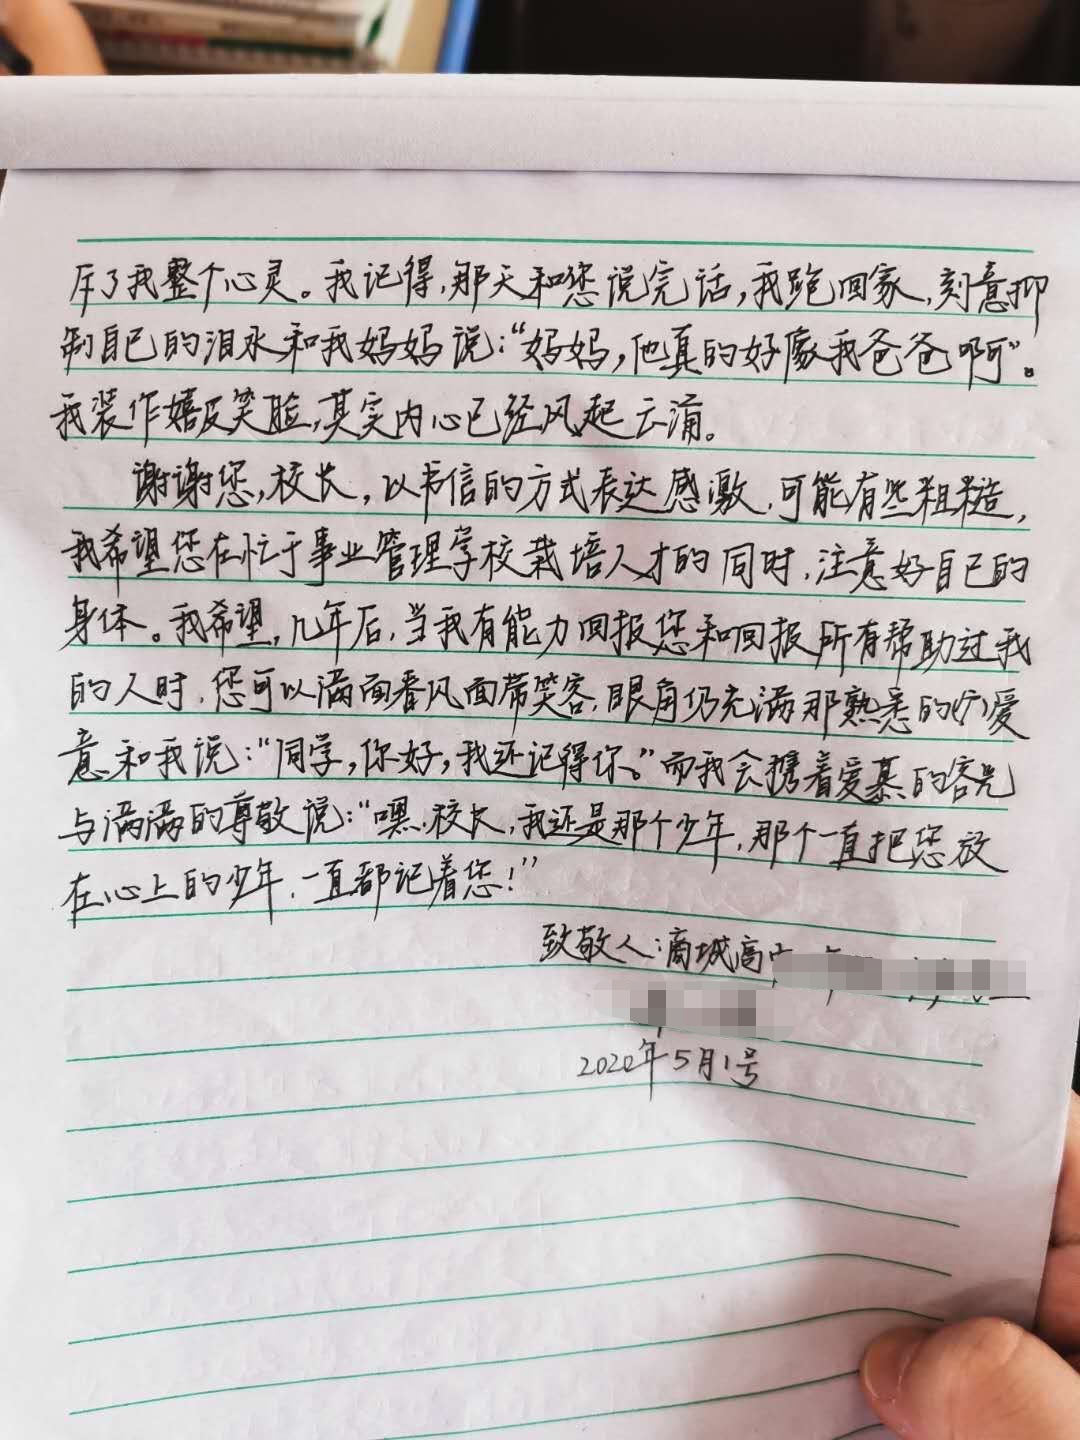 斥了我整个心灵。我记得,那天和您说完话,我跑回家,刻意抑
制自己的泪水和我妈妈说:“妈妈,他真的好像我爸爸啊”。
我装作嬉皮笑脸,其实内心已经风起云涌。
谢谢您,校长,以书信的方式表达感激,可能有些粗糙,
我希望您在忙于事业管理学校栽培人才的同时,注意好自己的
身体。我希望,几年后,当我有能力回报您和回报所有帮助过我
的人时,您可以满面春风面带笑容,眼角仍充满那熟悉的爱
意和我说:“同学,你好,我还记得你。”而我会携着爱慕的容光
与满满的尊敬说:“嘿,校长,我还是那个少年,那个一直把您放
在心上的少年,一直都记着您!”
致敬人:商城高中
2020年5月1号